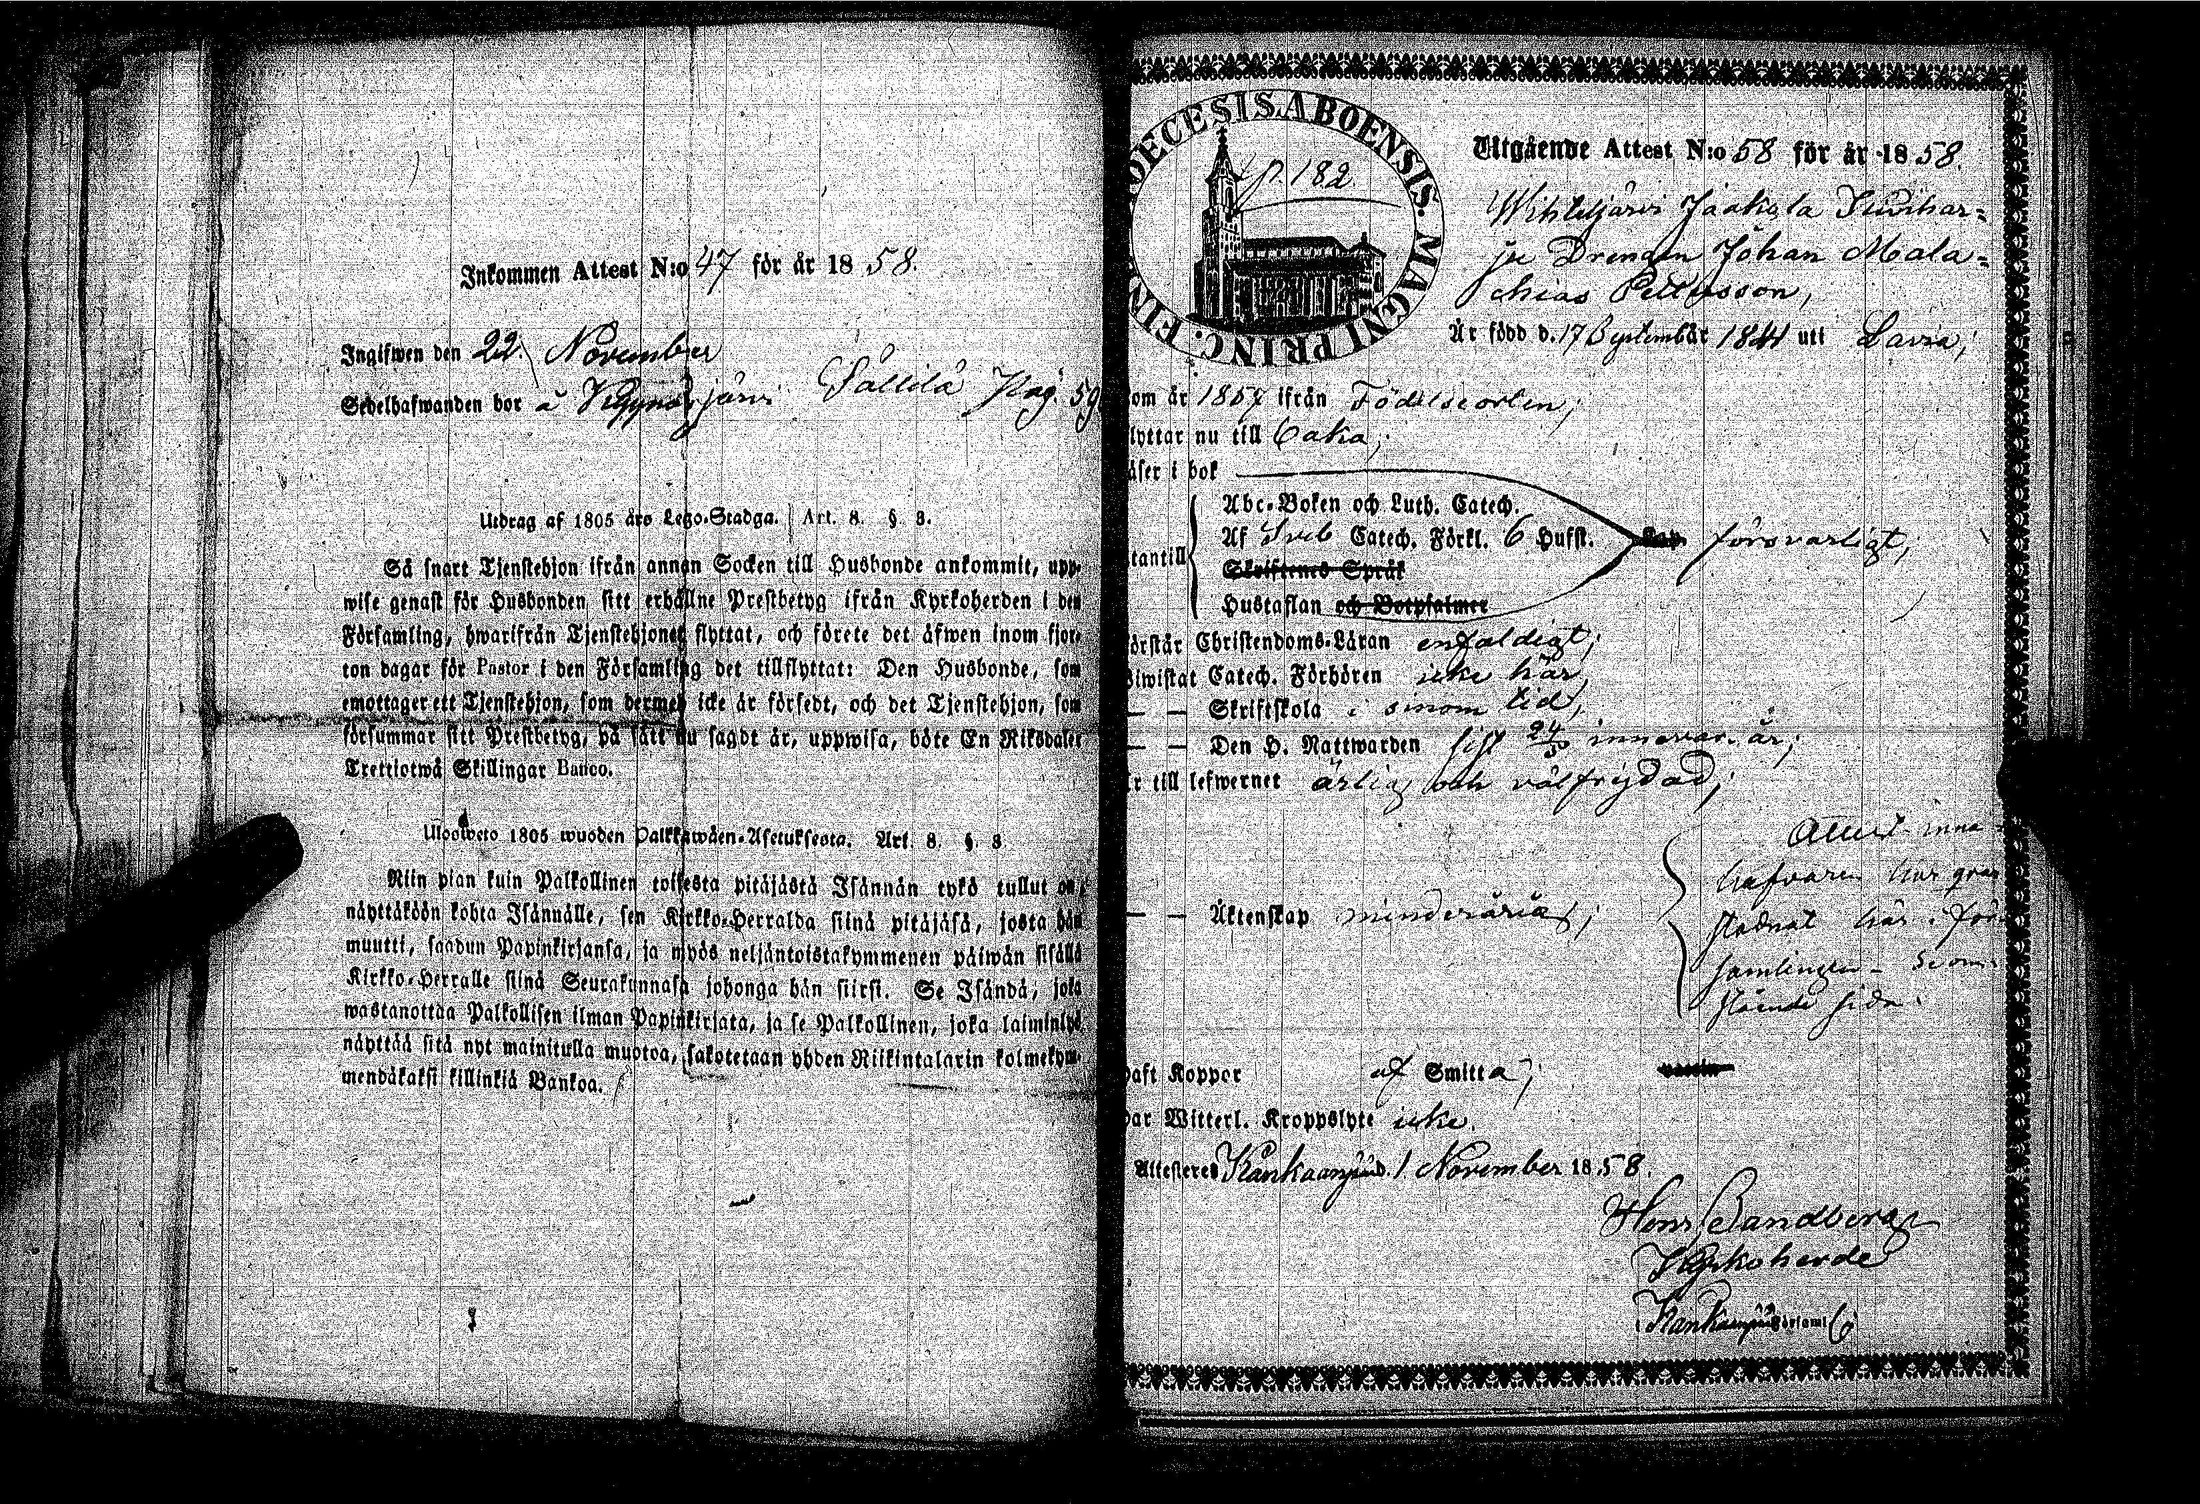 Inkommen Attest N:o 47 för år 1858.
Ingifwen den 22 November
Sedelhafwanden bor å järvi Såttilä Pag. 59
Utdrag af 1805 års Lego-Stadga. Art. 8. § 8.
Så snart Tjenstehjon ifrån annan Socken till Husbonde ankommit, upp-
wise genast för Husbonden sitt erhållne Prestbetyg ifrån Kyrkoherden i den
Församling, hwarifrån Tjenstehjonet flyttat, och förete det äfwen inom fjor-
ton dagar för Pastor i den Församling det tillflyttat: Den Husbonde, som
emottager ett Tjenstehjon, som dermed icke är försedt, och det Tjenstehjon, som
försummar sitt Prestbetyg, på sätt nu sagdt är, uppwisa, böte En Riksdaler
Trettiotwå Skillingar Banco.
Ulosweto 1805 wuoden Palkkawäen-Asetuksesta. Art. 8. §. 8
Niin pian kuin Palkollinen toisesta pitäjästä Isännän tykö tullut on,
näyttäköön kohta Isännälle, sen Kirkko-Herralda siinä pitäjäsä, josta hän
muutti, saadun Papinkirjansa, ja myös neljäntoistakymmenen päiwän sisällä
Kirkko-Herralle siinä Seurakunnasa johonga hän siirsi. Se Isändä, joka
wastanottaa Palkollisen ilman Papinkirjata, ja se Palkollinen, joka laiminlyö
näyttää sitä nyt mainitulla muotoa, sakotetaan yhden Riikintalarin kolmekym-
mendäkaksi killinkiä Bankoa.
DIOECESIS. ABOENSIS. MAGNI PRINC. FINL
p. 182
Utgående Attest N:o 58 för år 1858.
Wihteljärvi Jaakola Suvihar-
ju Drengen Johan Mala-
chias Pettersson,
Är född d. 17 Septembär 1841 uti Lavia,
om år 1857 ifrån Födelseorten,
lyttar nu till
äser i bok
Abc-Boken och Luth. Catech.
Af Sveb Catech. Förkl. 6 Hufst. försvarligt,
tantill
Skriftenes Språk
Hustaflan och Botpsalmer
örstår Christendoms-Läran enfaldigt,
Biwistat Catech. Förhören icke här,
— — Skriftskola i sinom tid,
— — Den H. Nattwarden sist 24 innevar. år,
r till lefwernet ärlig och välfrejdad,
Attest inne-
hafvaren har
— — Äktenskap minderårig,
här i för-
samlingen
stående
haft Koppor af Smitta,
har Witterl. Kroppslyte icke.
Attesteres Kankaanpää d. 1 November 1858.
Henr. Sandberg
Kyrkoherde
i Kankaanpää Församl